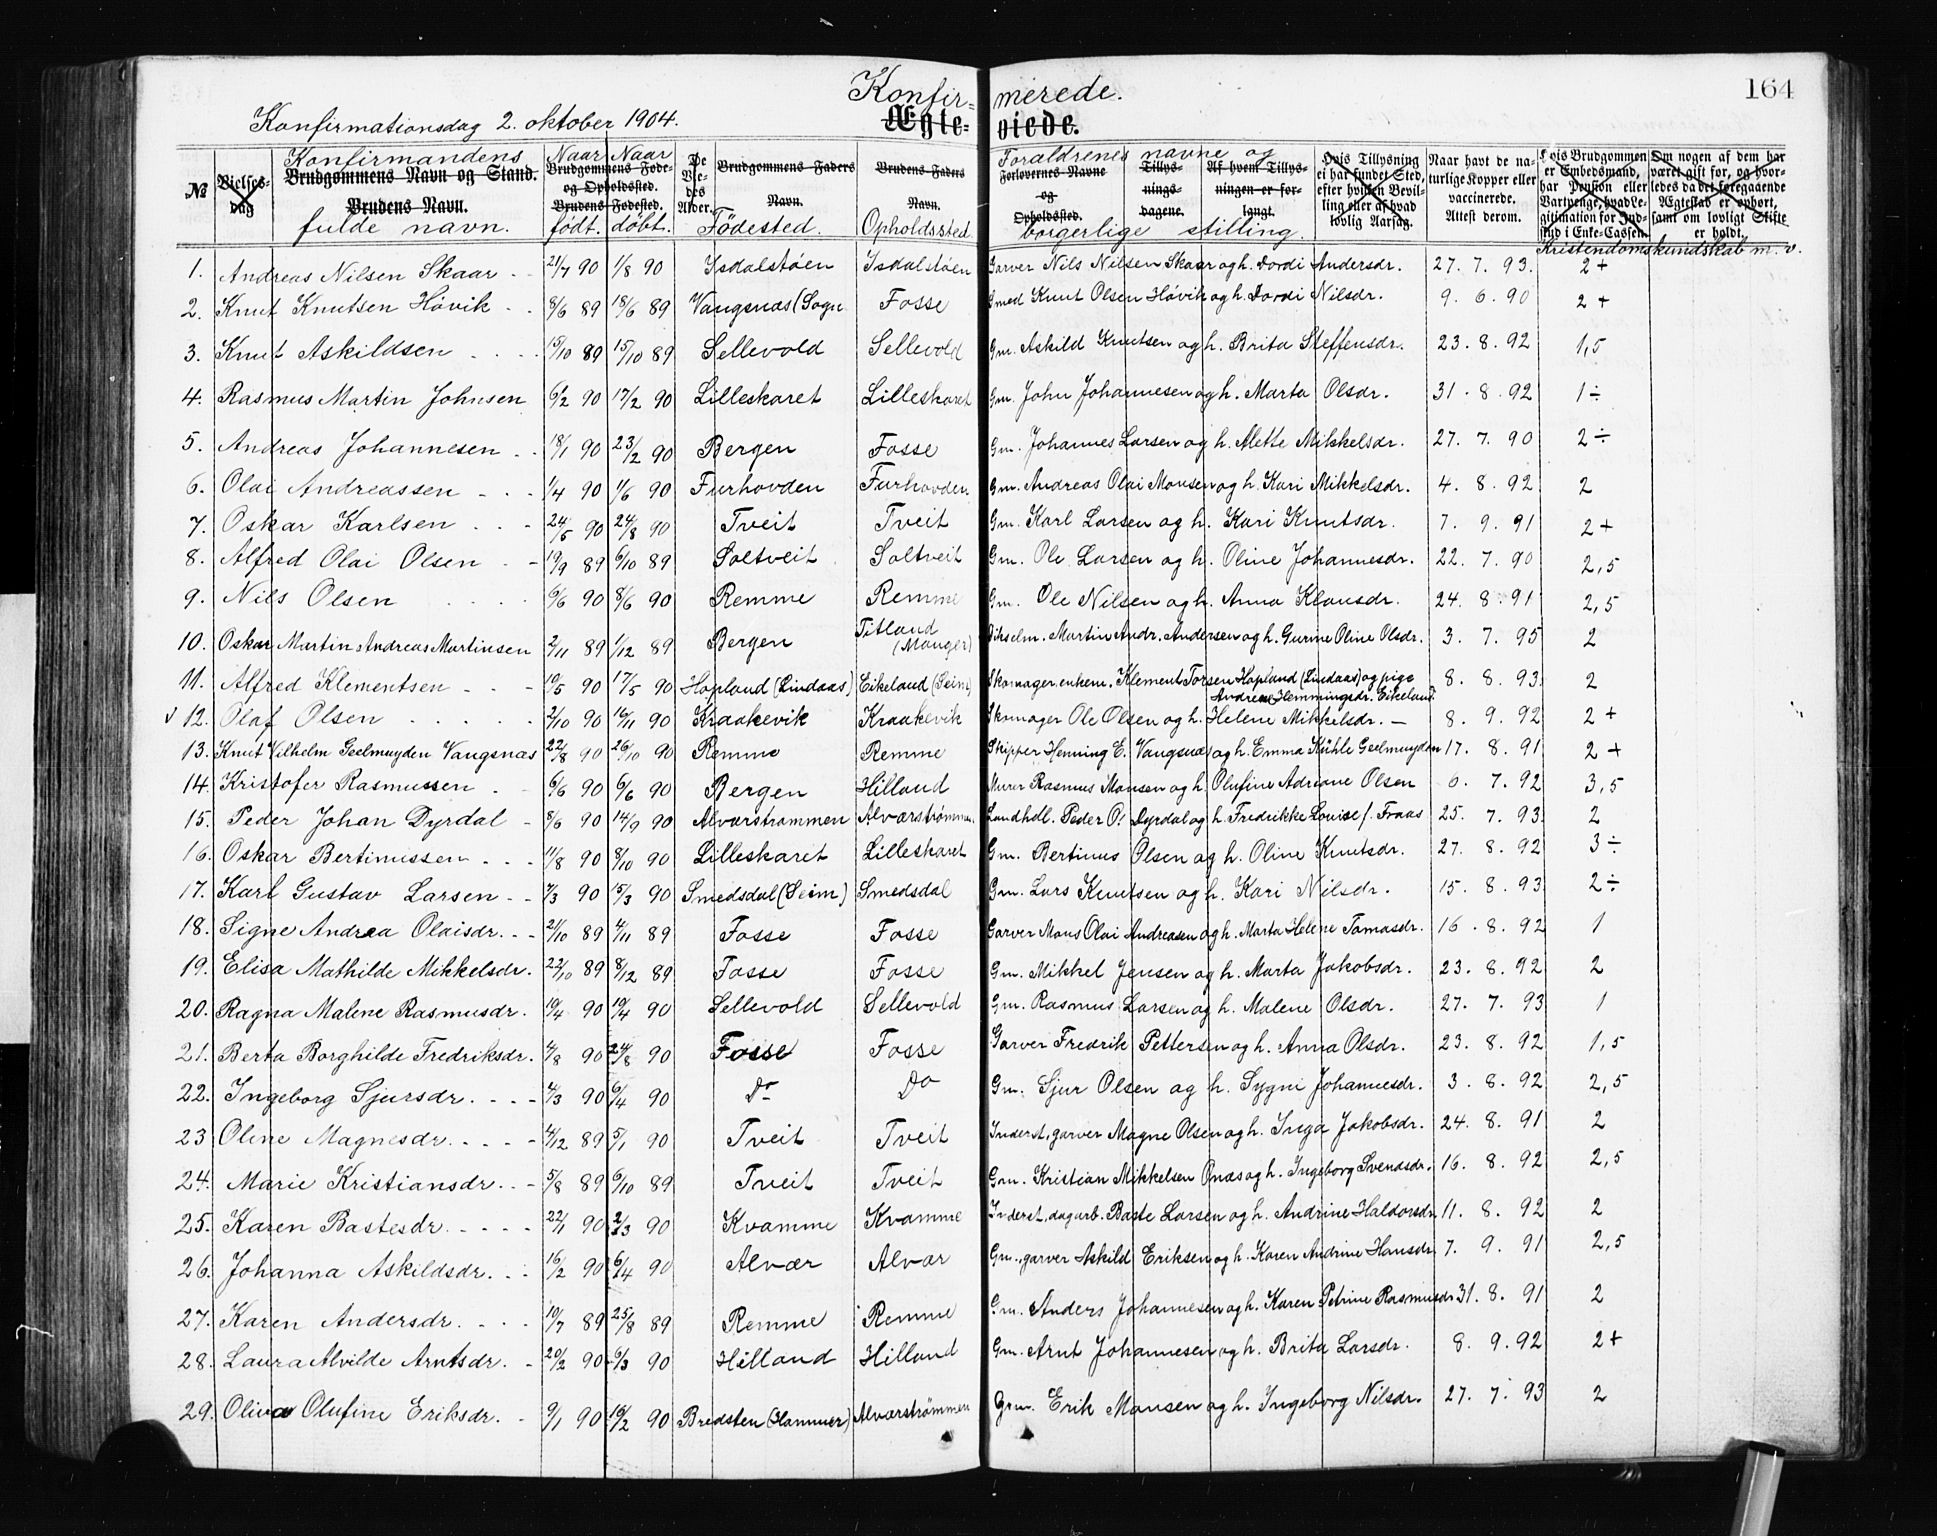 Konfir= merede. 164
Konfirmationsdag 2. oktober 1904. Ægte= viede.
Konfirmandens Naar Naar Forældrenes navne og
№ Vielses-dag Brudgommens Navn og Stand. Brudgommens Føde- og Opholdssted. De Viedes Alder. Brudgommens Faders Navn. Brudens Faders Navn. Forlovernes Navne og Opholdssted. Tillysningsdagene. Af hvem Tillysningen er forlangt. Hvis Tillysning ei har fundet Sted, efter hvilken Bevilling eller af hvad lovlig Aarsag. Naar havt de naturlige Kopper eller vaccinerede. Attest derom. Hvis Brudgommen er Embedsmand, har Pension eller Vartpenge, hvad Legitimation for Indskud i Enke-Cassen. Om nogen af dem har været gift før, og hvorledes da det foregaaende Ægteskab er ophørt, samt om lovligt Skifte er holdt.
Brudens Navn. Brudens Fødested.
fulde navn. født. døbt. Födested. Opholdssted. borgerlige stilling. Kristendomskundskab m. v.
1. Andreas Nilsen Skaar 21/7 90 1/8 90 Isdalstøen Isdalstøen Garver Nils Nilsen Skaar og h. Dordi Andersdr. 27. 7. 93. 2+
2. Knut Knutsen Høvik 8/6 89 18/6 89 Vangsnas (Sogn Fosse Smed Knut Olsen Høvik og h. Dordi Nilsdr. 9. 6. 90 2+
3. Knut Askildsen 15/10 89 15/10 89 Sellevold Sellevold Gm. Askild Knutsen og h. Brita Steffensdr. 23. 8. 92 1,5
4. Rasmus Martin Johnsen 6/2 90 17/2 90 Lilleskaret Lilleskaret Gm. John Johannesen og h. Marta Olsdr. 31. 8. 92 1÷
5. Andreas Johannesen 18/1 90 23/2 90 Bergen Fosse Gm. Johannes Larsen og h. Mette Mikkelsdr. 27. 7. 90 2÷
6. Olai Andreassen 1/4 90 1/6 90 Furhovden Furhovden Gm. Andreas Olai Monsen og h. Kari Mikkelsdr. 4. 8. 92 2
7. Oskar Karlsen 24/5 90 24/8 90 Tveit Tveit Gm. Karl Larsen og h. Kari Knutsdr. 7. 9. 91 2+
8. Alfred Olai Olsen 19/9 89 6/10 89 Soltveit Soltveit Gm. Ole Larsen og h. Oline Johannesdr. 22. 7. 90 2,5
9. Nils Olsen 6/6 90 8/6 90 Remme Remme Gm. Ole Nilsen og h. Anna Klausdr. 24. 8. 91 2,5
10. Oskar Martin Andreas Martinsen 2/11 89 1/12 89 Bergen Titland (Manger) Martin Andr. Andersen og h. Gurine Oline Olsdr. 3. 7. 95 2
11. Alfred Klementsen 10/5 90 17/5 90 Hopland (Lindaas) Eikeland (Seim) Skomager, enkem. Klement Torsen Hopland (Lindaas) og pige 8. 8. 93 2
Andrea Hemmingsdr. Eikeland.
12. Olaf Olsen 2/10 90 16/11 90 Kraakevik Kraakevik Skomager Ole Olsen og h. Helene Mikkelsdr. — 8. 9. 92 2+
13. Knut Vilhelm Geelmuyden Vangsnas 22/8 90 26/10 90 Remme Remme Skipper Henning E. Vangsnæs og h. Emma Kühle Geelmuyden 17. 8. 91 2+
14. Kristofer Rasmussen 6/6 90 6/6 90 Bergen Hilland Murer Rasmus Monsen og h. Olufine Adriane Olsen 6. 7. 92 3,5
15. Peder Johan Dyrdal 8/6 90 14/9 90 Alvarstrømmen Alværstrømmen Landhdl. Peder O. Dyrdal og h. Fredrikke Louise f. Fraas 25. 7. 93. 2
16. Oskar Bertinussen 11/8 90 8/10 90 Lilleskaret Lilleskaret Gm. Bertinus Olsen og h. Oline Knutsdr. 27. 8. 92 3÷
17. Karl Gustav Larsen 7/3 90 15/3 90 Smedsdal (Seim) Smedsdal Gm. Lars Knutsen og h. Kari Nilsdr. 15. 8. 93 2÷
18. Signe Andrea Olaisdr. 21/10 89 4/11 89 Fosse Fosse Garver Mons Olai Andreasen og h. Marta Helene Tomasdr. 16. 8. 92 1
19. Elisa Mathilde Mikkelsdr. 22/10 89 8/12 89 Fosse Fosse Gm. Mikkel Jensen og h. Marta Jakobsdr. 23. 8. 92 2
20. Ragna Malene Rasmusdr. 10/4 90 19/4 90 Sellevold Sellevold Gm. Rasmus Larsen og h. Malene Olsdr. 27. 7. 93 1
21. Berta Borghilde Fredriksdr. 4/8 90 24/8 90 Fosse Fosse Garver Fredrik Pettersen og h. Anna Olsdr. 23. 8. 92 1,5
22. Ingeborg Sjursdr. 4/3 90 6/4 90 Do Do Gm. Sjur Olsen og h. Sygni Johannesdr. 3. 8. 92 2,5
23 Oline Magnesdr. 4/12 89 5/1 90 Tveit Tveit Inderst, garver Magne Olsen og h. Inga Jakobsdr. 24. 8. 91 2
24. Marie Kristiansdr. 5/8 89 6/10 89 Tveit Tveit Gm. Kristian Mikkelsen Onæs og h. Ingeborg Svendsdr. 16. 8. 92 2,5
25. Karen Bastesdr. 22/1 90 2/3 90 Kvamme Kvamme Inderst, dagarb. Baste Larsen og h. Andrine Haldorsdr. 11. 8. 92 2
26. Johanna Askildsdr. 16/2 90 6/4 90 Alvær Alvær Gm., garver Askild Eriksen og h. Karen Andrine Hansdr. 7. 9. 91 2,5
27. Karen Andersdr. 10/7 89 25/8 89 Remme Remme Gm. Anders Johannesen og h. Karen Petrine Rasmusdr 31. 8. 91 2
28. Laura Alvilde Arntsdr. 20/2 90 9/3 90 Hilland Hilland Gm. Arnt Johannesen og h. Brita Larsdr. 8. 9. 92 2+
29. Oliva Olufine Eriksdr. 9/1 90 16/2 90 Bredsten (Hammer) Alværstrømmen Grm. Erik Monsen og h. Ingeborg Nilsdr. 27. 7. 93 2